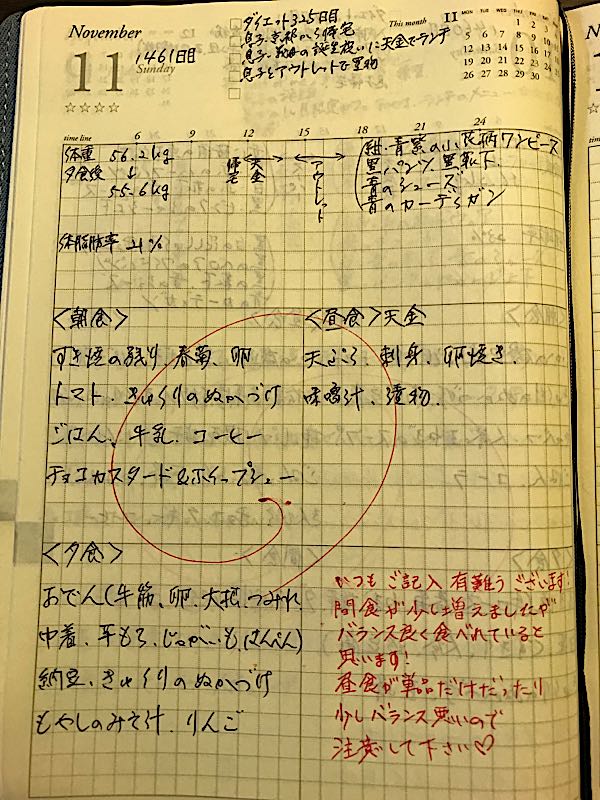 November
11
1461日目
Sunday
☆☆☆☆
ダイエット325日目
息子、京都から帰宅
息子、
の誕生祝いに天金でランチ
息子とアウトレットで買物
This month 11
MON TUE WED THU FRI SAT SUN
1 2 3 4
5 6 7 8 9 10 11
12 13 14 15 16 17 18
19 20 21 22 23 24 25
26 27 28 29 30
time line 6 9 12 15 18 21 24
体重 56.2kg
夕食後 ↓
55.6kg
体脂肪率 21%
帰宅
天金
アウトレット
紺・青紫の小花柄ワンピース
黒パンツ、黒靴下
青のシューズ
青のカーディガン
<朝食>
すき焼の残り、春菊、卵
トマト、きゅうりのぬかづけ
ごはん、牛乳、コーヒー
チョコカスタード&ホイップシュー
<昼食>天金
刺身、卵焼き、
味噌汁、漬物、
<夕食>
おでん(牛筋、卵、大根、つみれ
巾着、平もち、じゃがいも、はんぺん)
納豆、きゅうりのぬかづけ
もやしのみそ汁、りんご
いつもご記入有難うございます!
間食が少し増えましたが
バランス良く食べれていると
思います!
昼食が単品だけだったり
少しバランス悪いので
注意して下さい♡